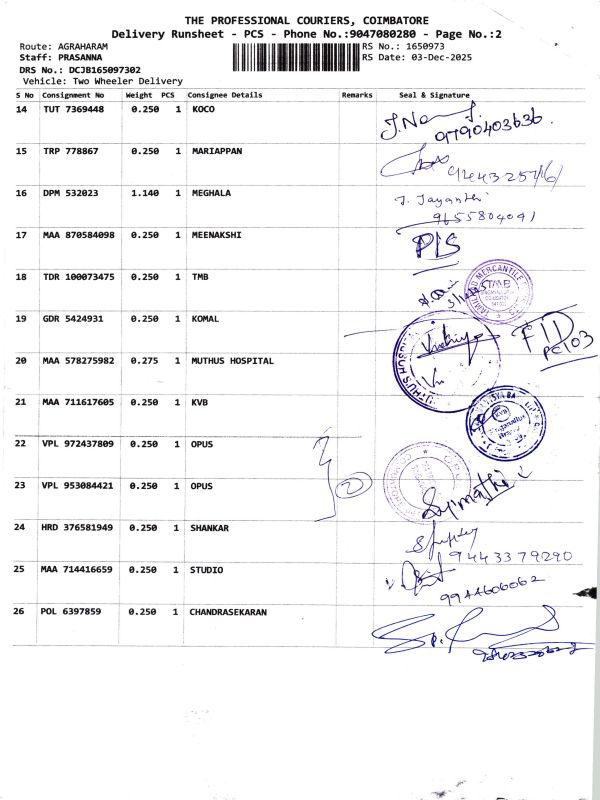 THE PROFESSIONAL COURIERS, COIMBATORE
Delivery Runsheet - PCS - Phone No.:9047080280 - Page No.:2
Route: AGRAHARAM
Staff: PRASANNA
DRS No.: DCJB165097302
Vehicle: Two Wheeler Delivery
RS No.: 1650973
RS Date: 03-Dec-2025
S No Consignment No Weight PCS Consignee Details Remarks Seal & Signature
14 TUT 7369448 0.250 1 KOCO
9790403636.
15 TRP 778867 0.250 1 MARIAPPAN
16 DPM 532023 1.140 1 MEGHALA J. Jayanthi
9655804041
17 MAA 870584098 0.250 1 MEENAKSHI P/S
18 TDR 100073475 0.250 1 TMB TMB
19 GDR 5424931 0.250 1 KOMAL FID
PC103
20 MAA 578275982 0.275 1 MUTHUS HOSPITAL
21 MAA 711617605 0.250 1 KVB KVB
22 VPL 972437809 0.250 1 OPUS
23 VPL 953084421 0.250 1 OPUS 2
24 HRD 376581949 0.250 1 SHANKAR
9443379290
25 MAA 714416659 0.250 1 STUDIO
9944606062
26 POL 6397859 0.250 1 CHANDRASEKARAN